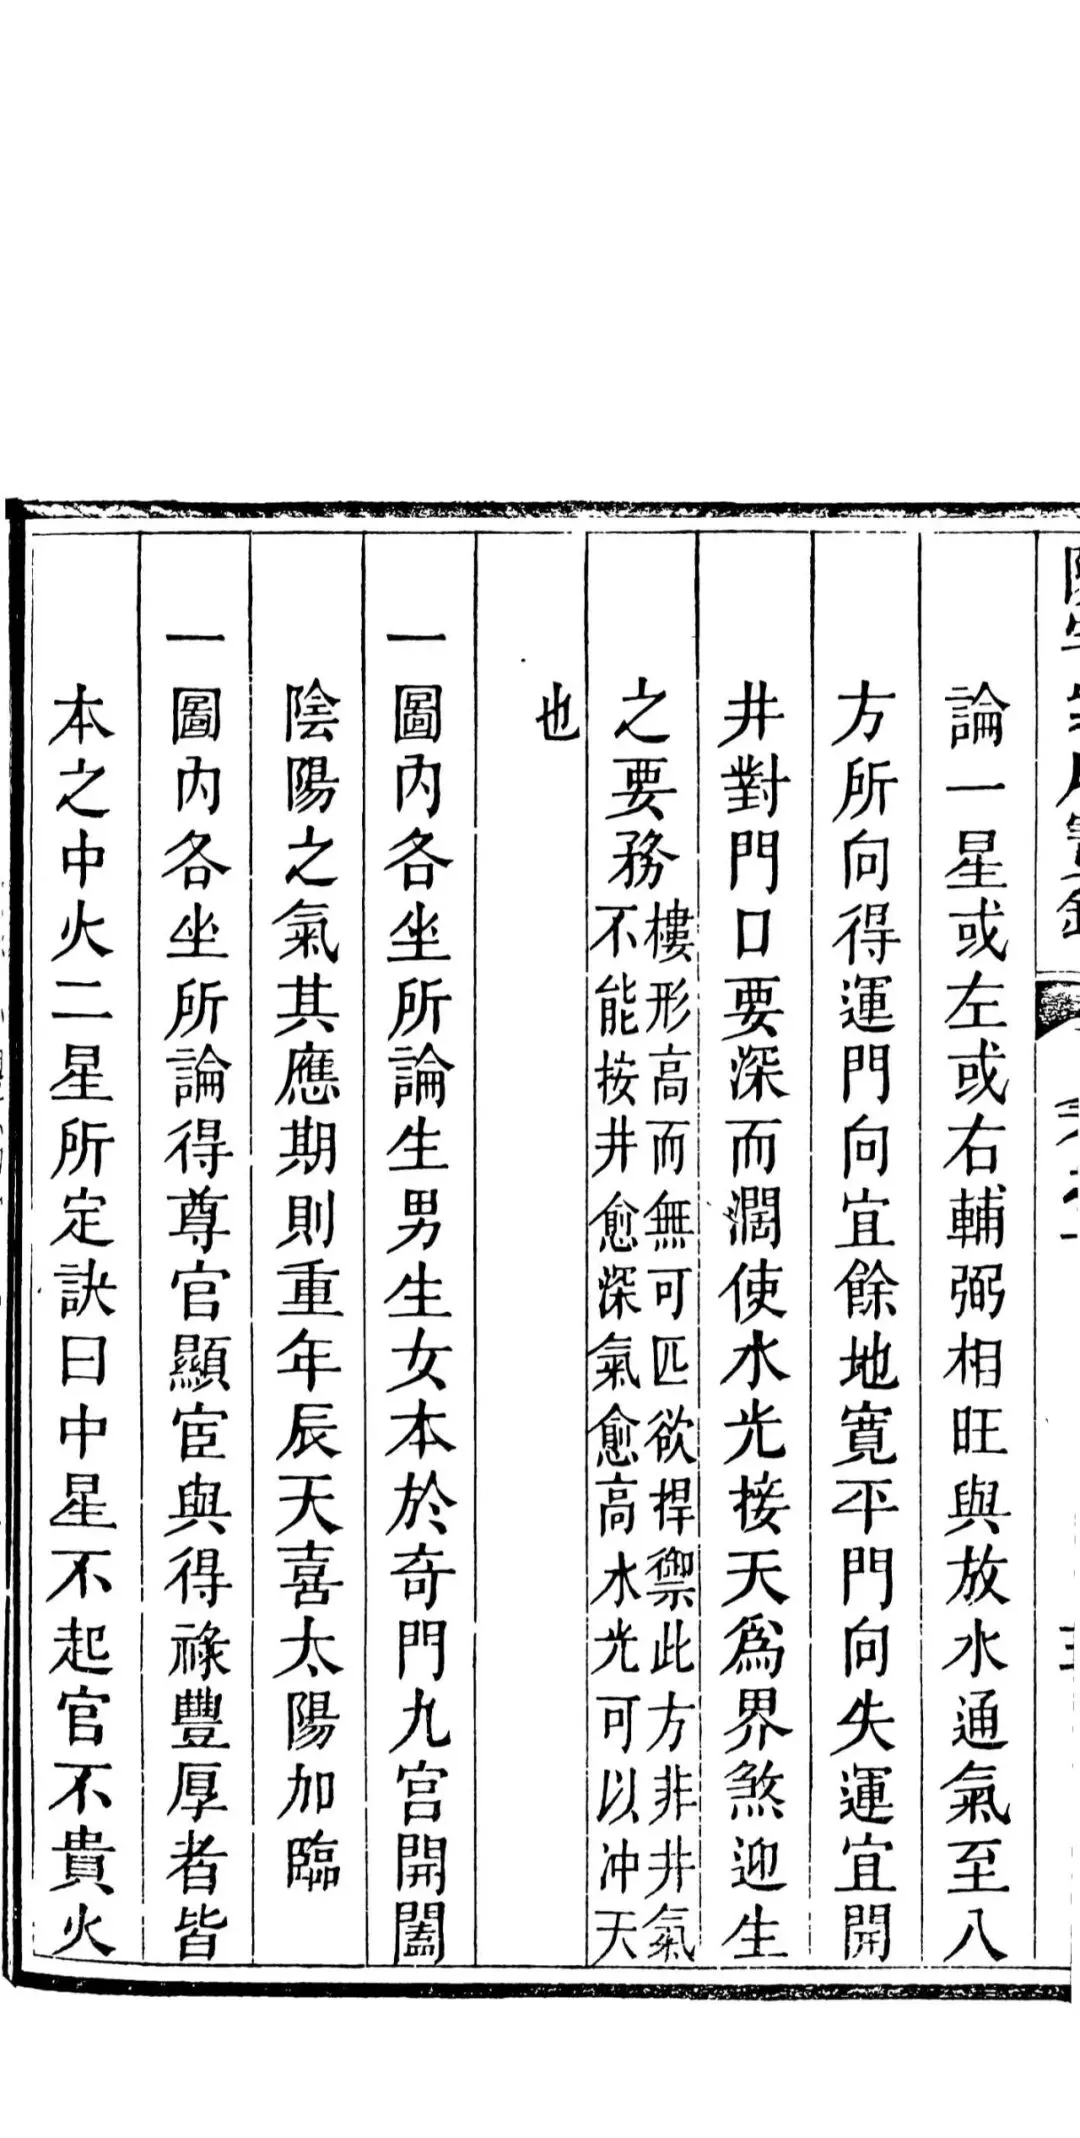 論一星或左或右輔弼相旺與放水通氣至八
方所向得運門向宜餘地寬平門向失運宜開
井對門口要深而濶使水光接天為界煞迎生
之要務樓形高而無可匹欲捍禦此方非井氣
不能按井愈深氣愈高水光可以冲天
也
一圖內各坐所論生男生女本於奇門九宮開闔
陰陽之氣其應期則重年辰天喜太陽加臨
一圖內各坐所論得尊官顯宦與得祿豐厚者皆
本之中火二星所定訣曰中星不起官不貴火